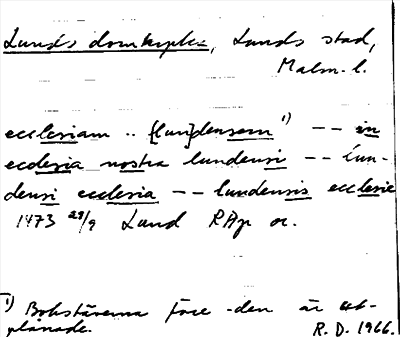 Lunds domkyrka, Lunds stad,
Malm. l.
ecclesiam .. [lun]densem 1) -- in
ecclesia nostra lundensi -- lun-
densi ecclesia -- lundensis ecclesie
1473 29/9 Lund RAp or.
1) Bokstäverna före -den är ut-
plånade. R. D. 1966.